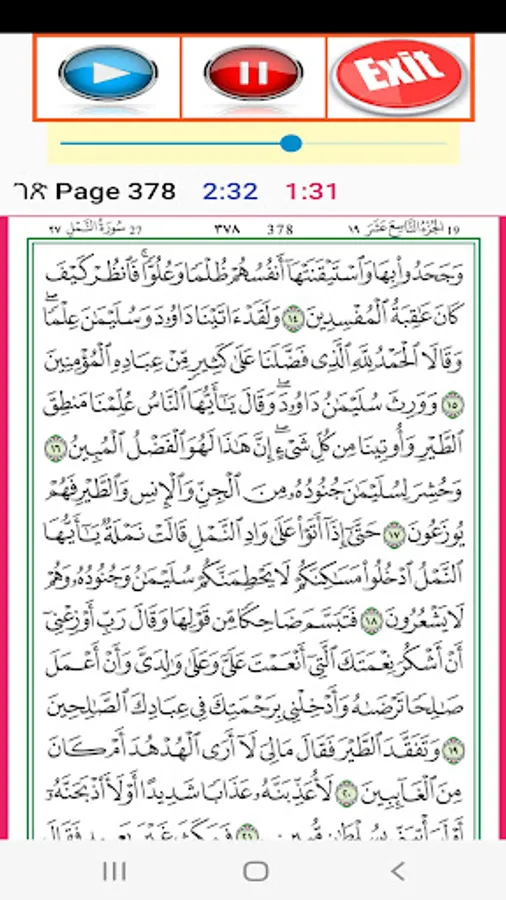 Exit
ገጽ Page 378 2:32 1:31
٢٧ سُورَةُ النَّمْلِ 27 ٣٧٨ 378 الجُزْءُ التَّاسِعَ عَشَرَ ١٩ 19
وَجَحَدُوا۟ بِهَا وَٱسْتَيْقَنَتْهَآ أَنفُسُهُمْ ظُلْمًا وَعُلُوًّا ۚ فَٱنظُرْ كَيْفَ
كَانَ عَـٰقِبَةُ ٱلْمُفْسِدِينَ ١٤ وَلَقَدْ ءَاتَيْنَا دَاوُۥدَ وَسُلَيْمَـٰنَ عِلْمًا ۖ
وَقَالَا ٱلْحَمْدُ لِلَّهِ ٱلَّذِى فَضَّلَنَا عَلَىٰ كَثِيرٍ مِّنْ عِبَادِهِ ٱلْمُؤْمِنِينَ
١٥ وَوَرِثَ سُلَيْمَـٰنُ دَاوُۥدَ ۖ وَقَالَ يَـٰٓأَيُّهَا ٱلنَّاسُ عُلِّمْنَا مَنطِقَ
ٱلطَّيْرِ وَأُوتِينَا مِن كُلِّ شَىْءٍ ۖ إِنَّ هَـٰذَا لَهُوَ ٱلْفَضْلُ ٱلْمُبِينُ ١٦
وَحُشِرَ لِسُلَيْمَـٰنَ جُنُودُهُۥ مِنَ ٱلْجِنِّ وَٱلْإِنسِ وَٱلطَّيْرِ فَهُمْ
يُوزَعُونَ ١٧ حَتَّىٰٓ إِذَآ أَتَوْا۟ عَلَىٰ وَادِ ٱلنَّمْلِ قَالَتْ نَمْلَةٌ يَـٰٓأَيُّهَا
ٱلنَّمْلُ ٱدْخُلُوا۟ مَسَـٰكِنَكُمْ لَا يَحْطِمَنَّكُمْ سُلَيْمَـٰنُ وَجُنُودُهُۥ وَهُمْ
لَا يَشْعُرُونَ ١٨ فَتَبَسَّمَ ضَاحِكًا مِّن قَوْلِهَا وَقَالَ رَبِّ أَوْزِعْنِىٓ
أَنْ أَشْكُرَ نِعْمَتَكَ ٱلَّتِىٓ أَنْعَمْتَ عَلَىَّ وَعَلَىٰ وَٰلِدَىَّ وَأَنْ أَعْمَلَ
صَـٰلِحًا تَرْضَىٰهُ وَأَدْخِلْنِى بِرَحْمَتِكَ فِى عِبَادِكَ ٱلصَّـٰلِحِينَ
١٩ وَتَفَقَّدَ ٱلطَّيْرَ فَقَالَ مَا لِىَ لَآ أَرَى ٱلْهُدْهُدَ أَمْ كَانَ
مِنَ ٱلْغَآئِبِينَ ٢٠ لَأُعَذِّبَنَّهُۥ عَذَابًا شَدِيدًا أَوْ لَأَا۟ذْبَحَنَّهُۥٓ
أَوْ لَيَأْتِيَنِّى بِسُلْطَـٰنٍ مُّبِينٍ ٢١ فَمَكَثَ غَيْرَ بَعِيدٍ فَقَالَ